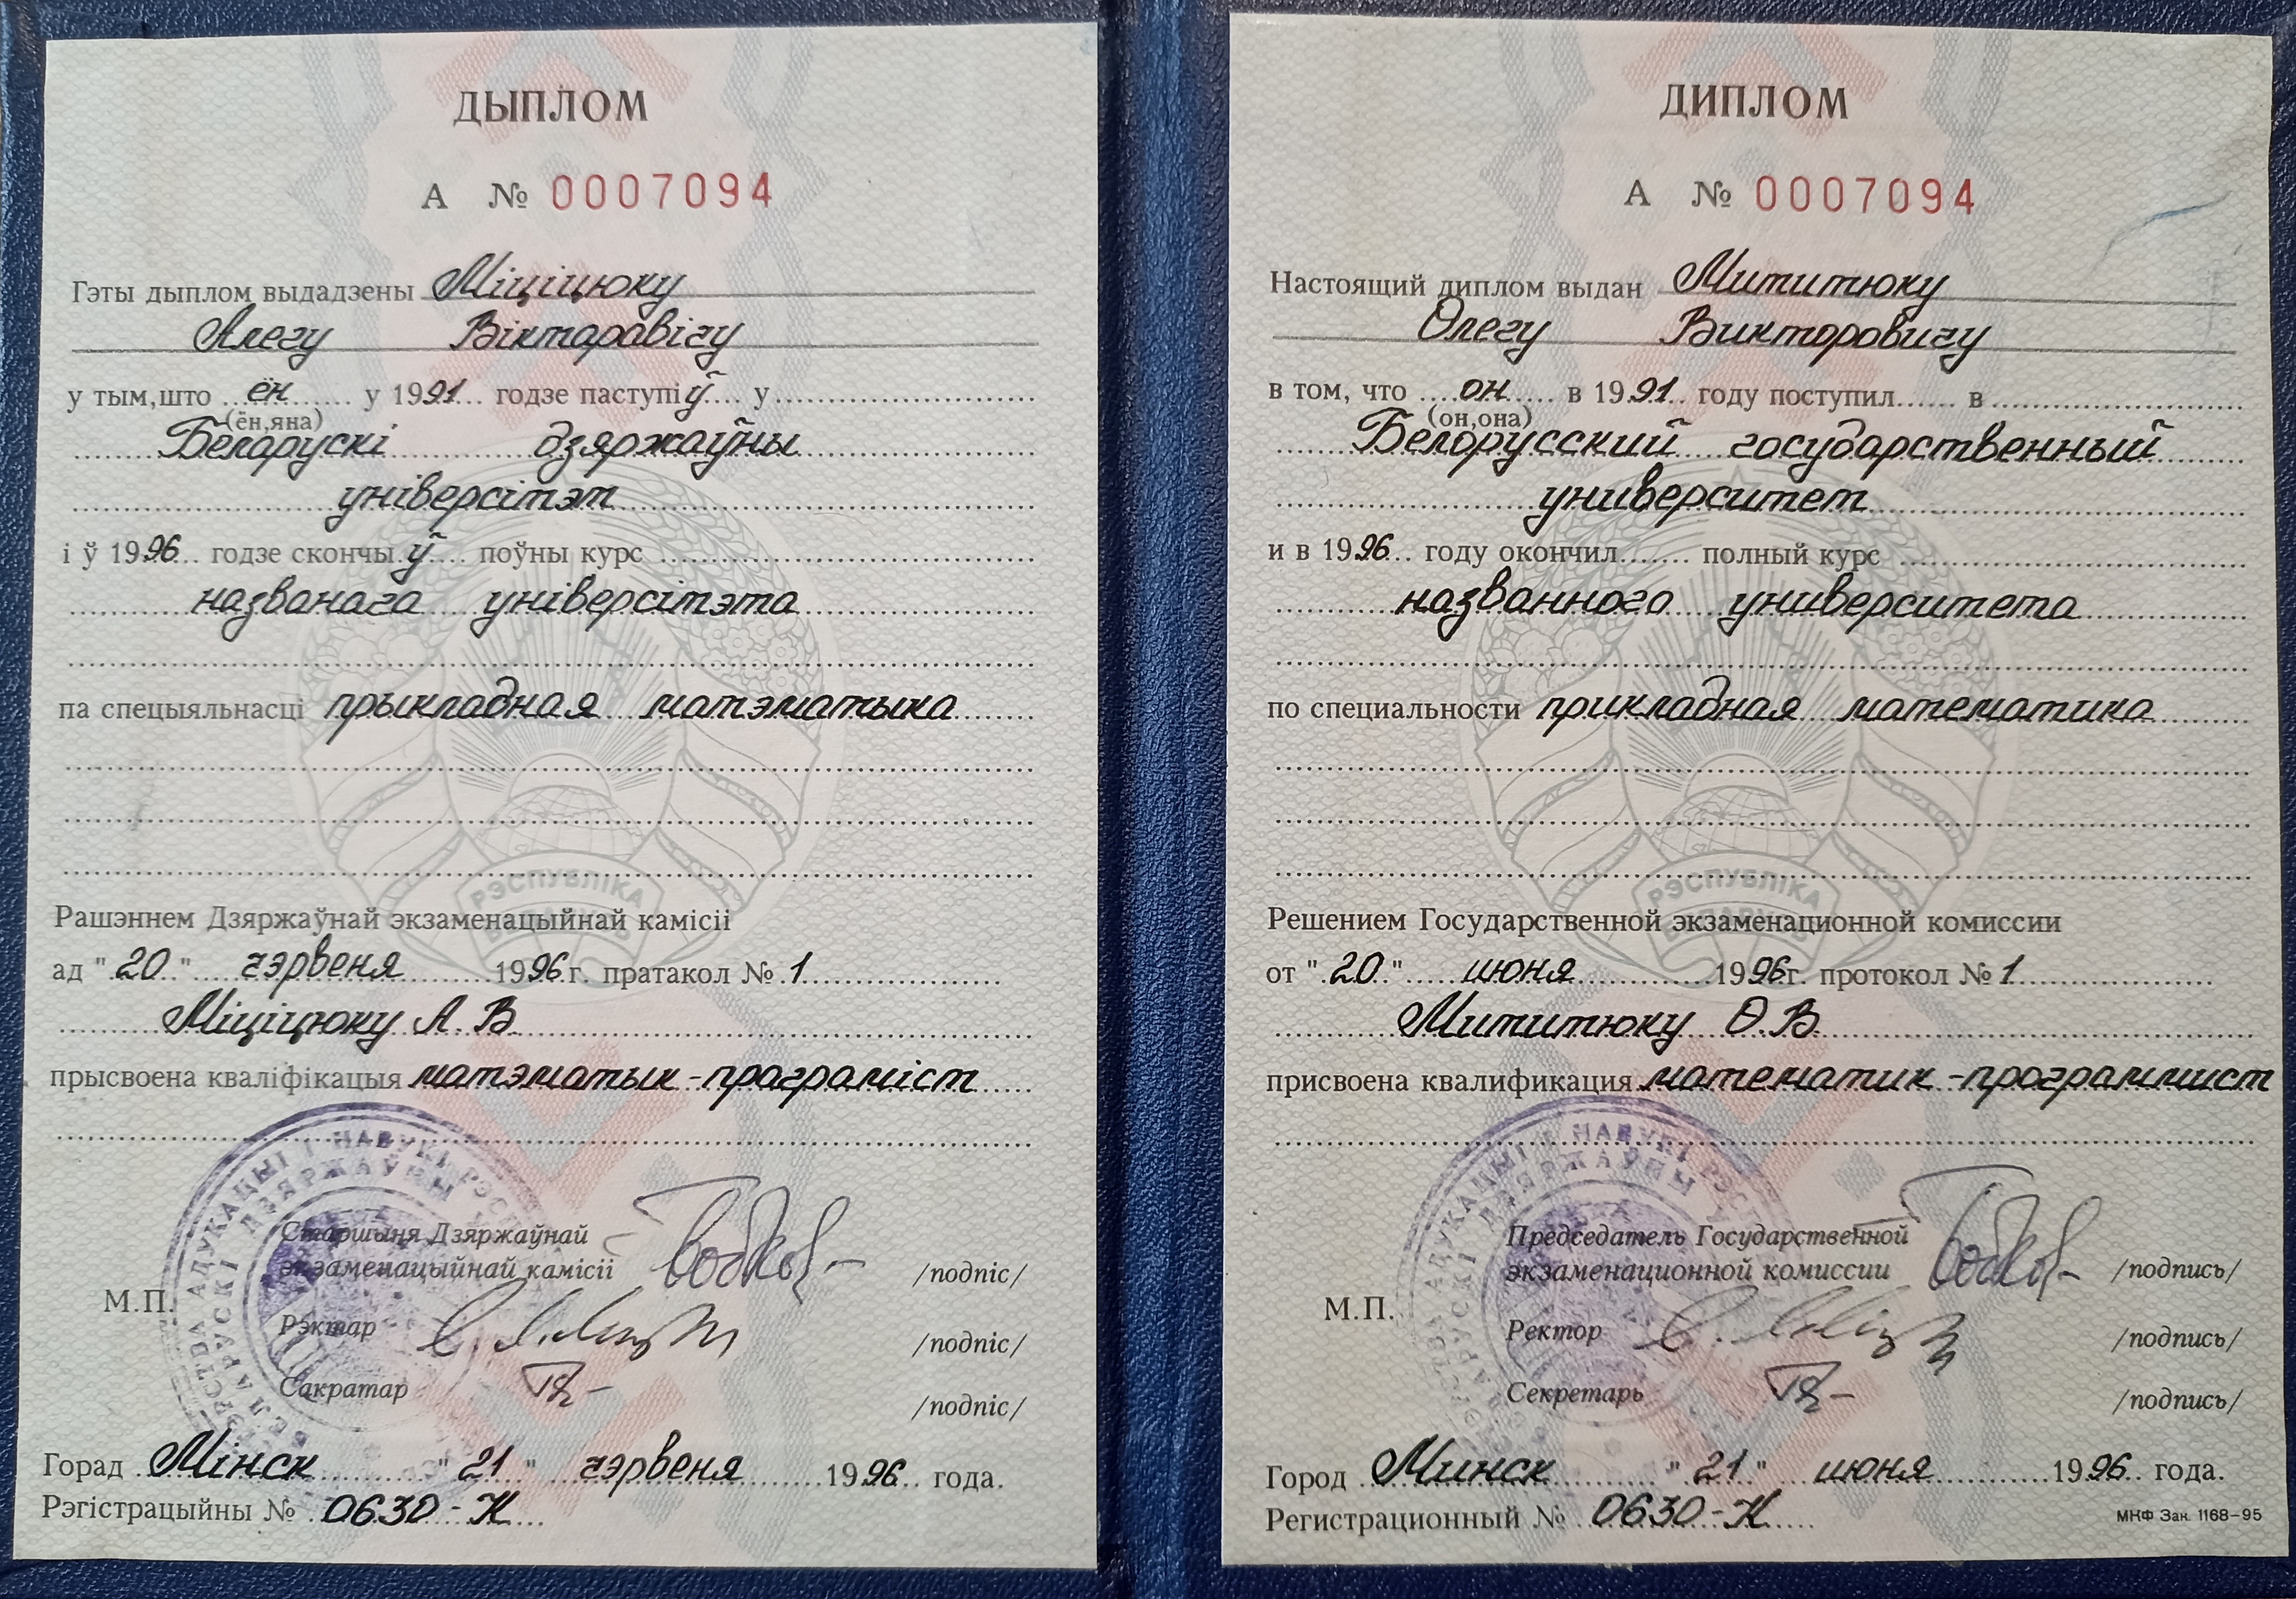 ДЫПЛОМ
А № 0007094
Гэты дыплом выдадзены Міціцюку
Алегу Віктаравічу
у тым,што ён у 1991 годзе паступіў у
(ён,яна)
Беларускі дзяржаўны
універсітэт
і ў 1996 годзе скончыў поўны курс
названага універсітэта
па спецыяльнасці прыкладная матэматыка
РЭСПУБЛІКА
Рашэннем Дзяржаўнай экзаменацыйнай камісіі
ад "20" чэрвеня 1996 г. пратакол № 1
Міціцюку А. В.
прысвоена кваліфікацыя матэматык-праграміст
АДУКАЦЫІ І НАВУКІ РЭСП
БЕЛАРУСКІ ДЗЯРЖАЎНЫ
Старшыня Дзяржаўнай
экзаменацыйнай камісіі /подпіс/
М.П.
Рэктар /подпіс/
Сакратар /подпіс/
Горад Мінск "21" чэрвеня 1996 года.
Рэгістрацыйны № 0630-К
ДИПЛОМ
А № 0007094
Настоящий диплом выдан Мититюку
Олегу Викторовичу
в том, что он в 1991 году поступил в
(он,она)
Белорусский государственный
университет
и в 1996 году окончил полный курс
названного университета
по специальности прикладная математика
РЭСПУБЛІКА
Решением Государственной экзаменационной комиссии
от "20" июня 1996г. протокол № 1
Мититюку О.В.
присвоена квалификация математик-программист
АДУКАЦЫІ І НАВУКІ РЭСП
ДЗЯРЖАЎНЫ
Председатель Государственной
экзаменационной комиссии /подпись/
М.П.
Ректор /подпись/
Секретарь /подпись/
Город Минск "21" июня 1996 года.
Регистрационный № 0630-К
МНФ Зак. 1168-95